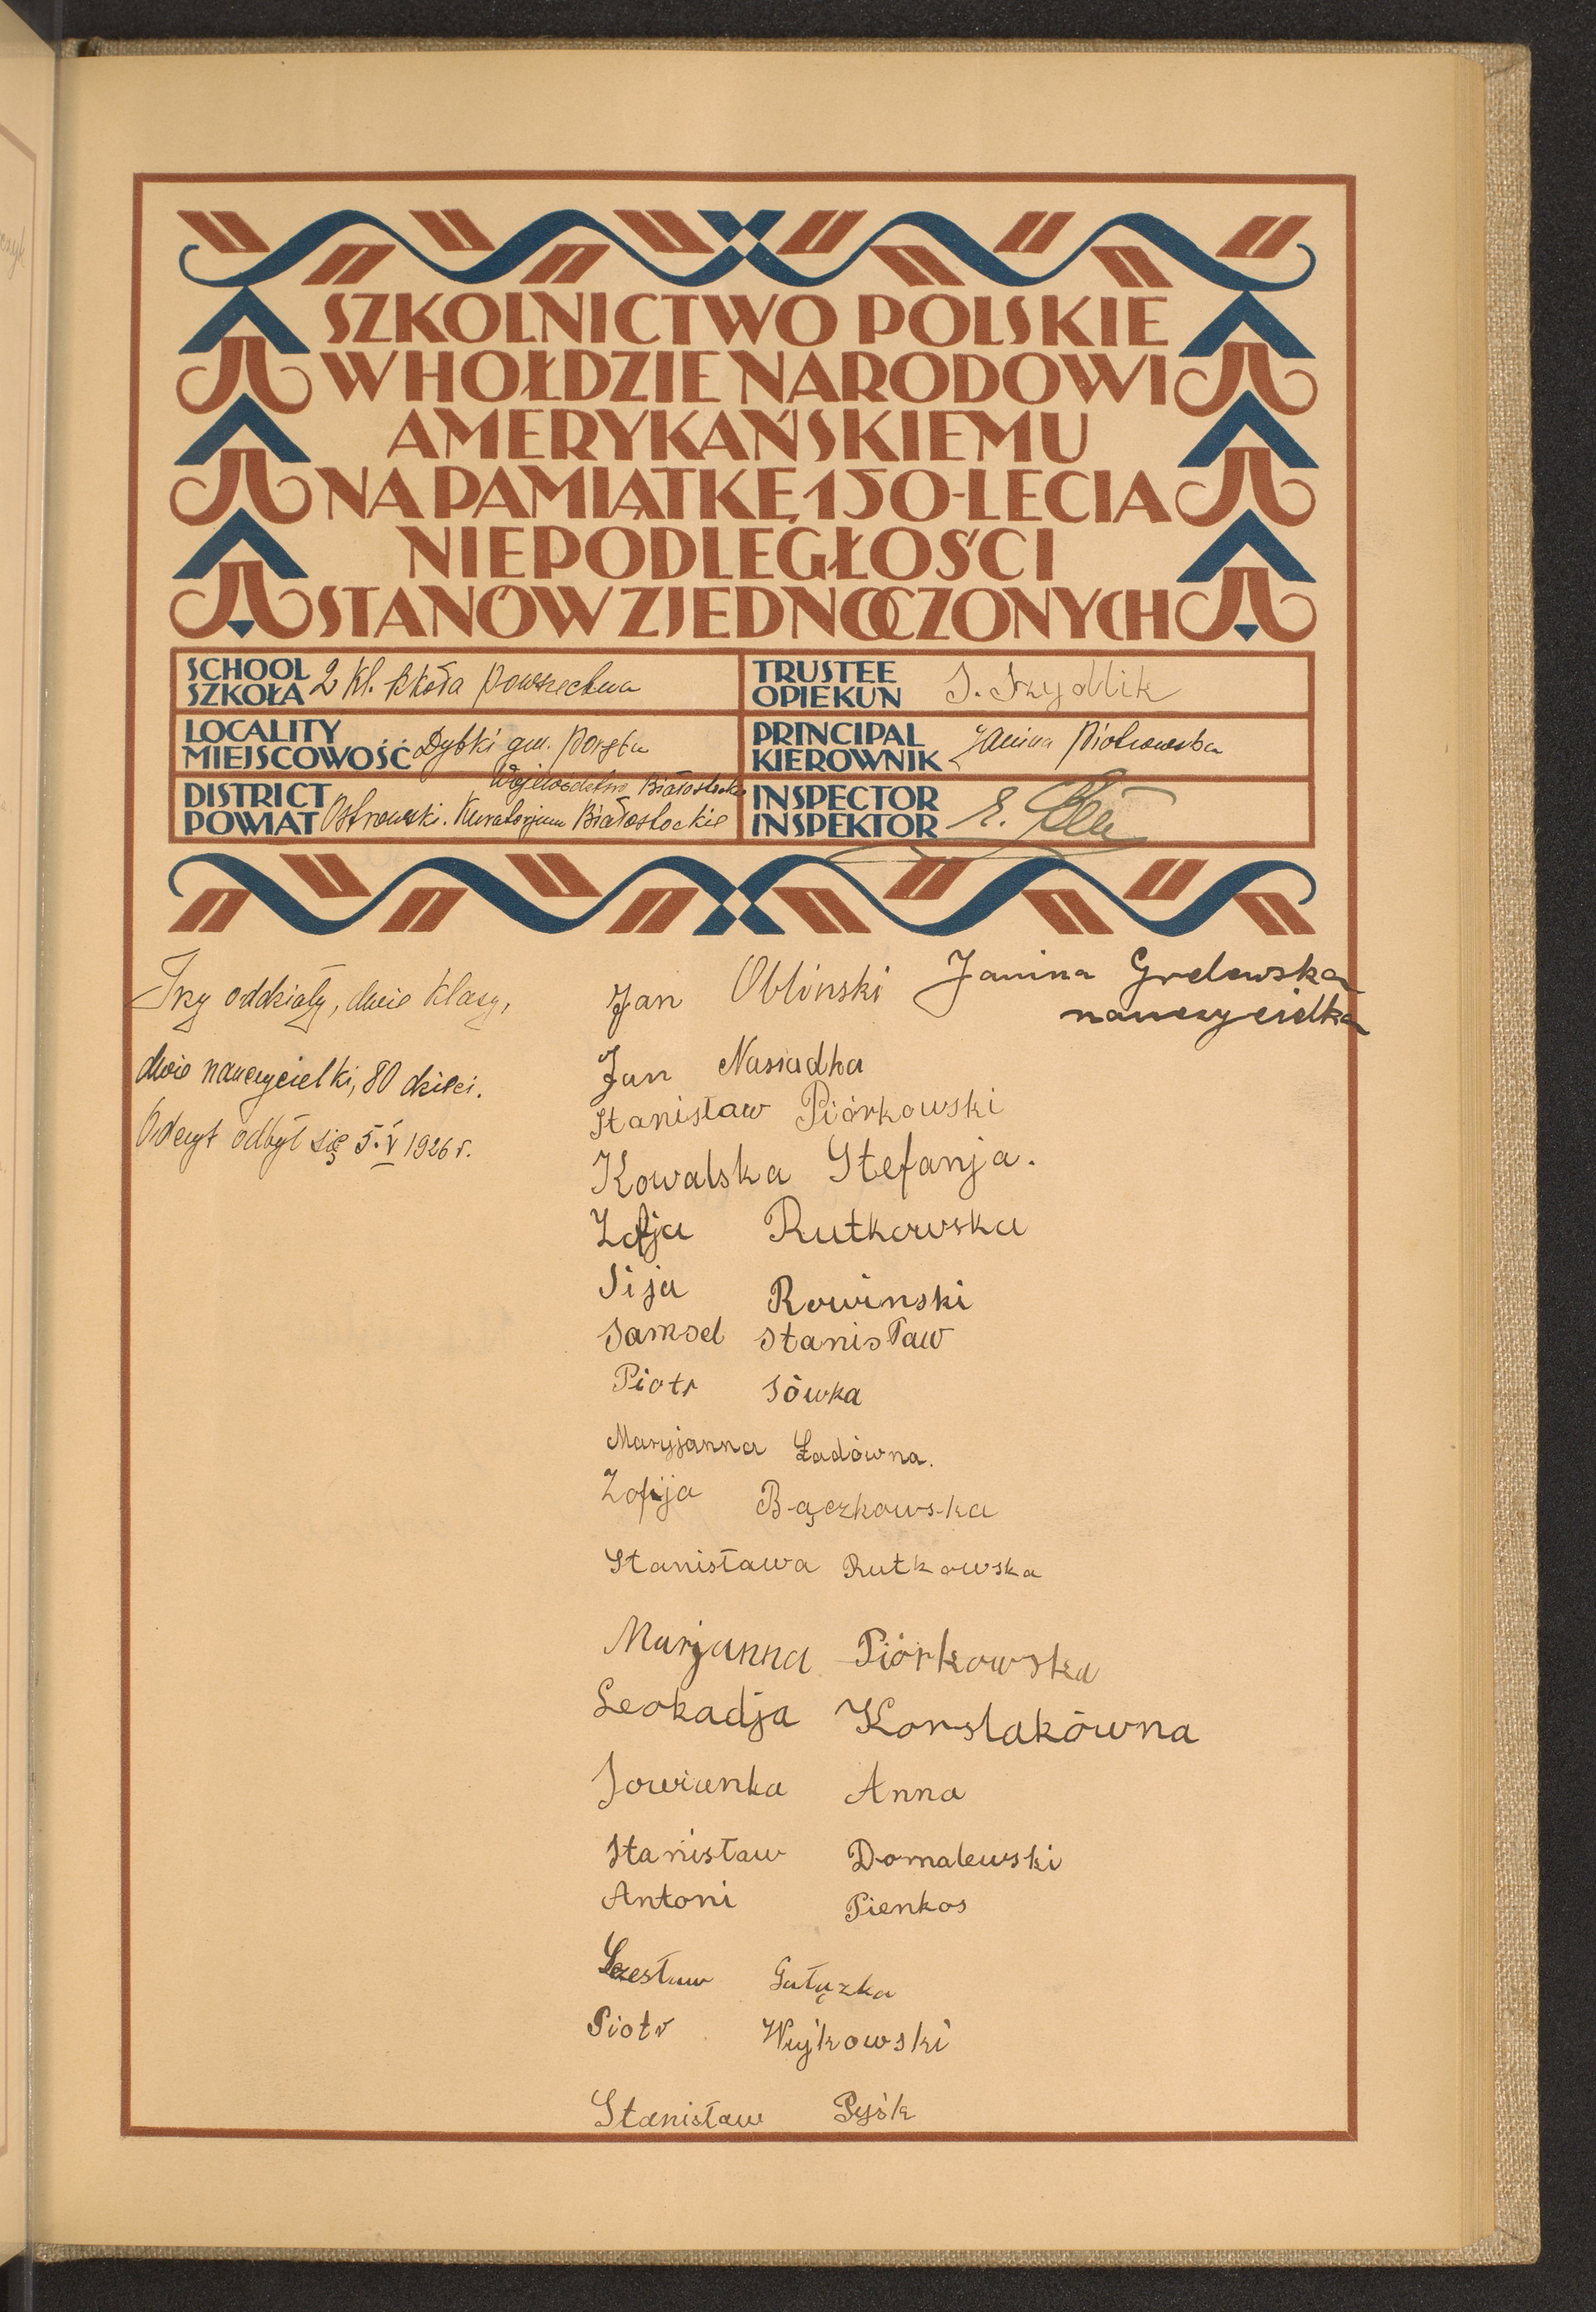 SZKOLNICTWO POLSKIE
W HOŁDZIE NARODOWI
AMERYKAŃSKIEMU
NA PAMIĄTKĘ 150-LECIA
NIEPODLEGŁOŚCI
STANÓW ZJEDNOCZONYCH
SCHOOL
SZKOŁA 2 kl. szkoła powszechna
TRUSTEE
OPIEKUN
LOCALITY
MIEJSCOWOŚĆ Dybki gm. Poręba
PRINCIPAL
KIEROWNIK Janina Piotrowska
Województwo Białostockie
DISTRICT
POWIAT Ostrowski. Kuratorjum Białostockie
INSPECTOR
INSPEKTOR E.
Trzy oddziały, dwie klasy,
dwie nauczycielki, 80 dzieci.
Odczyt odbył się 5. V 1926 r.
Jan Obliński Janina Grelewska
nauczycielka
Jan Nasiadka
Stanisław Piórkowski
Kowalska Stefanja.
Zofja Rutkowska
Rowinski
Samsel Stanisław
Piotr Sówka
Maryjanna Żadówna.
Zofija Bączkowska
Stanisława Rutkowska
Marjanna Piórkowska
Leokadja Korslakówna
Jowianka Anna
Stanisław Domalewski
Antoni Pienkos
Czesław Gałązka
Piotr Wujkowski
Stanisław Pyśk